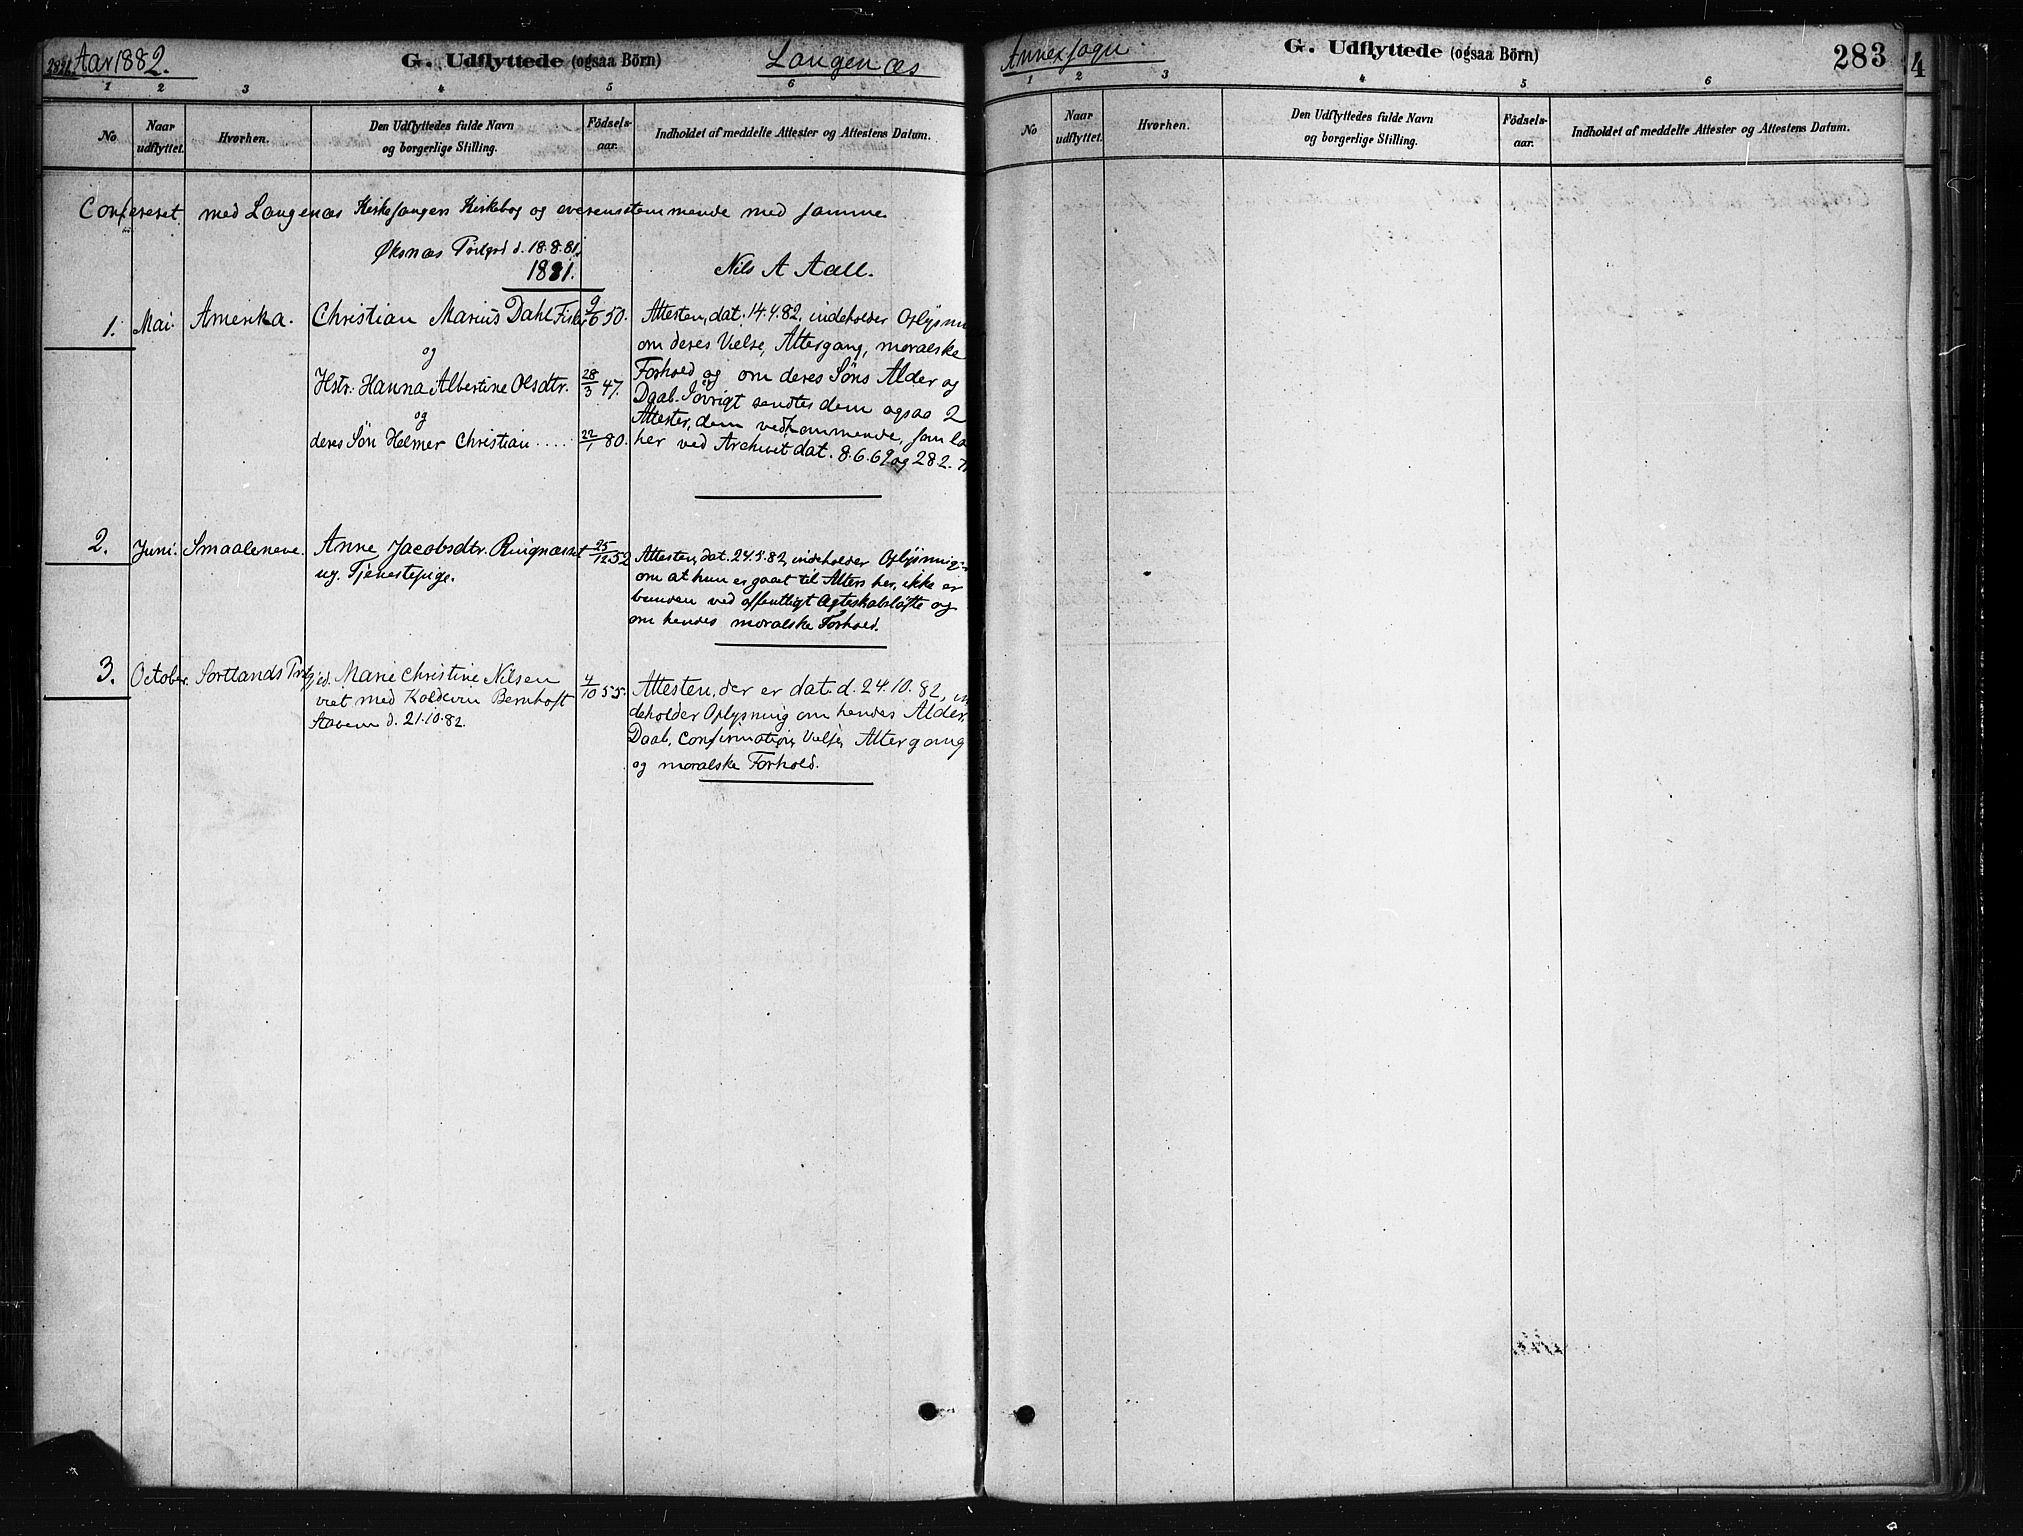 Aar 1882.
G. Udflyttede (ogsaa Börn)
Langenæs
1 2 3 4 5 6
No
Naar udflyttet.
Hvorhen.
Den Udflyttedes fulde Navn
og borgerlige Stilling.
Födsels-
aar.
Indholdet af meddelte Attester og Attestens Datum.
Confereret med Langenæs Kirkesangers Kirkebog og overensstemmende med samme
Øksnæs Præstgrd d. 18.8.81.
Nils A Aall.
1881.
1. Mai. Amerika. Christian Marius Dahl Fisker 9/6 50.
og
Hstr. Hanna Albertine Olsdtr. 28/3 47.
og
deres Søn Helmer Christian ..... 22/1 80.
Attesten, dat. 14.4.82, indeholder Oplysn
om deres Vielse, Altergang, moralske
Forhold og om deres Søns Alder og
Daab. Iøvrigt sendtes dem ogsaa 2
Attester, dem vedkommende, som la
her ved Archivet dat. 8.6.69 og 28.2.
2. Juni. Smaalenene. Anne Jacobsdtr. Ringnæsset 25/12 52
ug. Tjenestepige.
Attesten, dat. 24.5.82, indeholder Oplysning
om at hun er gaaet til Alters her, ikke er
bunden ved offentligt Ægteskabsløfte og
om hendes moralske Forhold.
3. October. Sortlands Prstgjed. Marie Christine Nilsen 4/10 55.
viet med Koldevin Bernhoft
Aavem d. 21.10.82.
Attesten, der er dat. d. 24.10.82, in
deholder Oplysning om hendes Alder,
Daab, Confirmation, Vielse, Altergang
og moralske Forhold.
Annexsogn
G. Udflyttede (ogsaa Börn)
283
4
1 2 3 4 5 6
No
Naar udflyttet.
Hvorhen.
Den Udflyttedes fulde Navn
og borgerlige Stilling.
Födsels-
aar.
Indholdet af meddelte Attester og Attestens Datum.